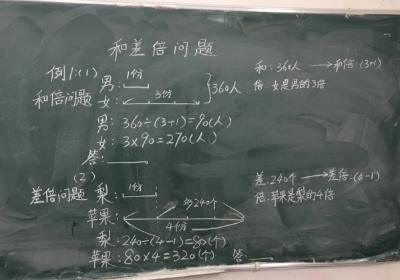 和差倍问题
例1:(1)
和倍问题
男: 1份
女: 3份
360人
男: 360÷(3+1)=90(人)
女: 3×90=270(人)
答:
和: 360人 → 和倍: (3+1)
倍: 女是男的3倍
(2)
差倍问题
梨: 1份
多240个
苹果:
4份
梨: 240÷(4-1)=80(个)
苹果: 80×4=320(个) 答
差: 240个 → 差倍: (4-1)
倍: 苹果是梨的4倍